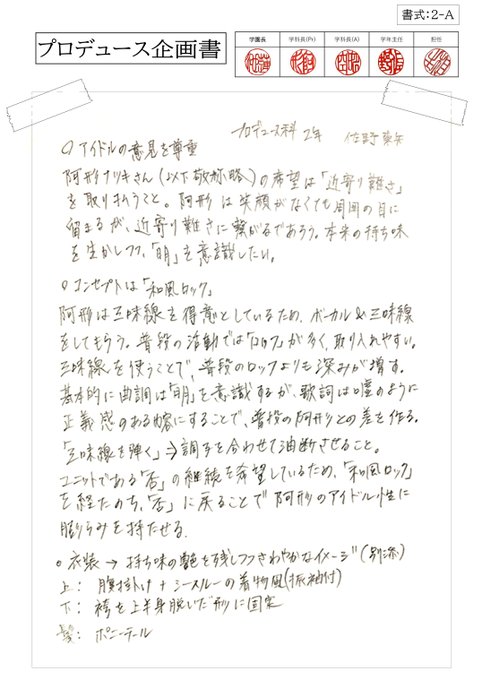 書式：2-A
プロデュース企画書
学園長 学科長(Pr) 学科長(A) 学年主任 担任
プロデュース科 2年 佐野
○アイドルの意見を尊重
阿形ナツキさん(以下敬称略)の希望は「近寄り難さ」
を取り払うこと。阿形は笑顔がなくても周囲の目に
留まるが、近寄り難さに繋がるであろう。本来の持ち味
を生かしつつ、「明」を意識したい。
○コンセプトは「和風ロック」
阿形は三味線を得意としているため、ボーカル&三味線
をしてもらう。普段の活動では「ロック」が多く、取り入れやすい。
三味線を使うことで、普段のロックよりも深みが増す。
基本的に曲調は「明」を意識するが、歌詞は嘘のように
正義感のある内容にすることで、普段の阿形との差を作る。
「三味線を弾く」⇒調子を合わせて油断させること。
ユニットである「杏」の継続を希望しているため、「和風ロック」
を経たのち、「杏」に戻ることで阿形のアイドル性に
膨らみを持たせる。
○衣装→持ち味の艶を残しつつさわやかなイメージ(別添)
上： 腹掛け+シースルーの着物風(振袖付)
下： 袴を上半身脱いだ形に固定
髪： ポニーテール